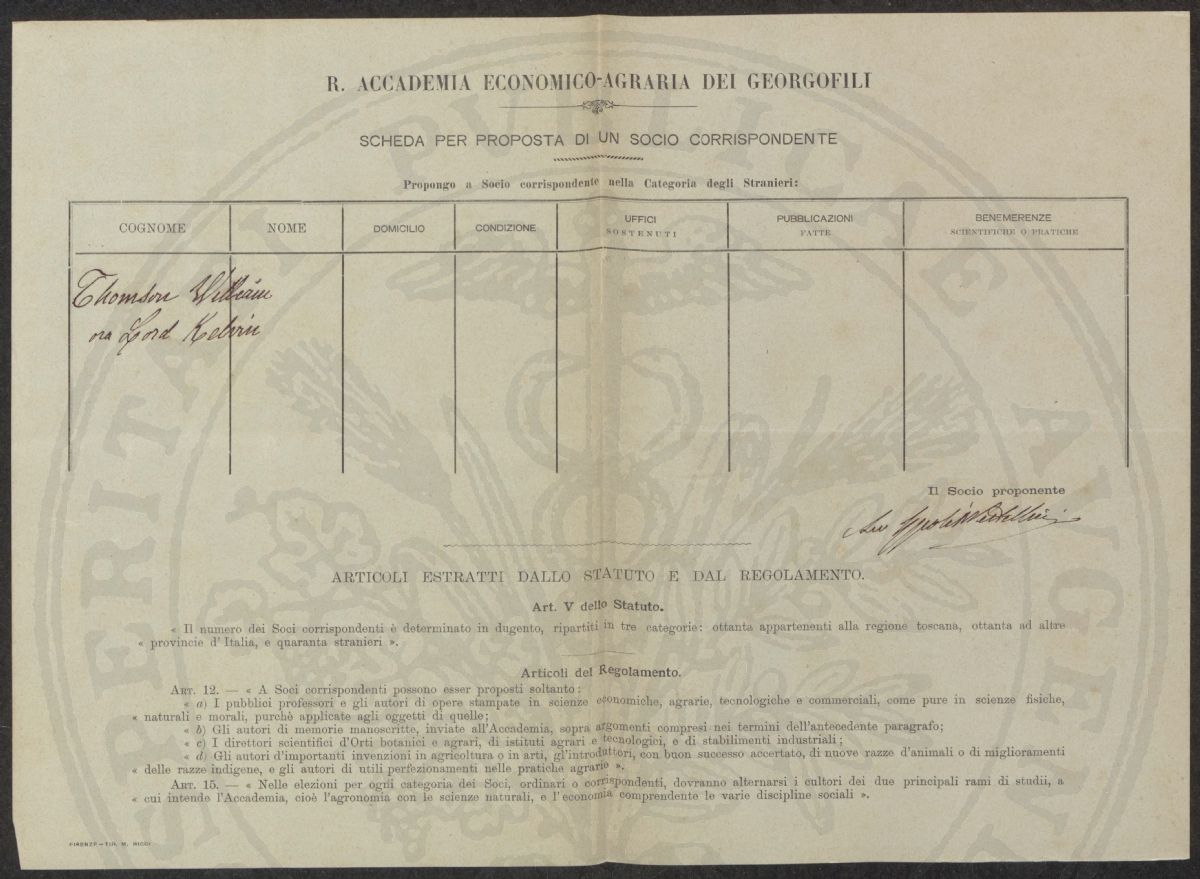 R. ACCADEMIA ECONOMICO-AGRARIA DEI GEORGOFILI
SCHEDA PER PROPOSTA DI UN SOCIO CORRISPONDENTE
Propongo a Socio corrispondente nella Categoria degli Stranieri:
COGNOME NOME DOMICILIO CONDIZIONE UFFICI SOSTENUTI PUBBLICAZIONI FATTE BENEMERENZE SCIENTIFICHE O PRATICHE
Thomson William
ora Lord Kelvin
Il Socio proponente
ARTICOLI ESTRATTI DALLO STATUTO E DAL REGOLAMENTO.
Art. V dello Statuto.
« Il numero dei Soci corrispondenti è determinato in dugento, ripartiti in tre categorie: ottanta appartenenti alla regione toscana, ottanta ad altre
« provincie d'Italia, e quaranta stranieri ».
Articoli del Regolamento.
ART. 12. — « A Soci corrispondenti possono esser proposti soltanto:
« a) I pubblici professori e gli autori di opere stampate in scienze economiche, agrarie, tecnologiche e commerciali, come pure in scienze fisiche,
« naturali e morali, purchè applicate agli oggetti di quelle;
« b) Gli autori di memorie manoscritte, inviate all'Accademia, sopra argomenti compresi nei termini dell'antecedente paragrafo;
« c) I direttori scientifici d'Orti botanici e agrari, di istituti agrari e tecnologici, e di stabilimenti industriali;
« d) Gli autori d'importanti invenzioni in agricoltura o in arti, gl'introduttori, con buon successo accertato, di nuove razze d'animali o di miglioramenti
« delle razze indigene, e gli autori di utili perfezionamenti nelle pratiche agrarie ».
ART. 15. — « Nelle elezioni per ogni categoria dei Soci, ordinari o corrispondenti, dovranno alternarsi i cultori dei due principali rami di studii, a
« cui intende l'Accademia, cioè l'agronomia con le scienze naturali, e l'economia comprendente le varie discipline sociali ».
FIRENZE — TIP. M. RICCI